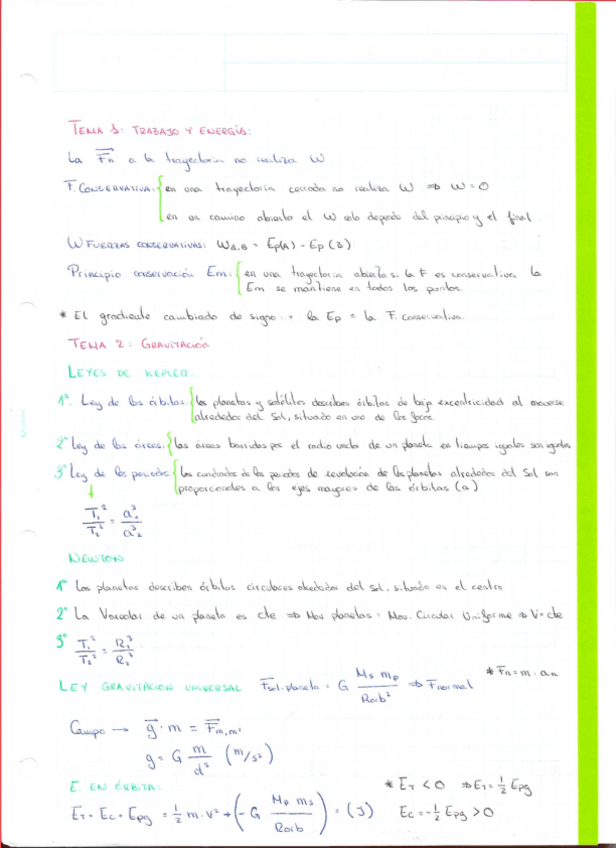 TEMA 1: TRABAJO Y ENERGÍA:
La Fn a la trayectoria no realiza W
F. CONSERVATIVA: en una trayectoria cerrada no realiza W ⇒ W = 0
en un camino abierto el W solo depende del principio y el final
W FUERZAS CONSERVATIVAS: W A,B = Ep(A) - Ep(B)
Principio conservación Em: en una trayectoria abierta si la F es conservativa la
Em se mantiene en todos los puntos.
* El gradiente cambiado de signo la Ep = la F. conservativa.
TEMA 2: GRAVITACIÓN
LEYES DE KEPLER:
1ª Ley de las órbitas: los planetas y satélites describen órbitas de baja excentricidad al moverse
alrededor del Sol, situado en uno de los focos.
2ª Ley de las áreas: las áreas barridas por el radio vector de un planeta en tiempos iguales son iguales
3ª Ley de los periodos: los cuadrados de los periodos de revolución de los planetas alrededor del Sol son
proporcionales a los ejes mayores de las órbitas (a)
T₁²/T₂² = a₁³/a₂³
NEWTON
1º Los planetas describen órbitas circulares alrededor del Sol, situado en el centro
2º La Vareolar de un planeta es cte ⇒ Mov planetas = Mov. Circular Uniforme ⇒ V = cte
3º T₁²/T₂² = R₁³/R₂³
LEY GRAVITACION UNIVERSAL Fsol-planeta = G Ms mp / Rorb² ⇒ Fnormal * Fn = m · an
Campo → g · m = Fm,m'
g = G m/d² (m/s²)
E. EN ÓRBITA: * ET < 0 ⇒ ET = 1/2 Epg
ET = Ec + Epg = 1/2 m · v² + (-G Mp ms / Rorb) = (J) Ec = -1/2 Epg > 0